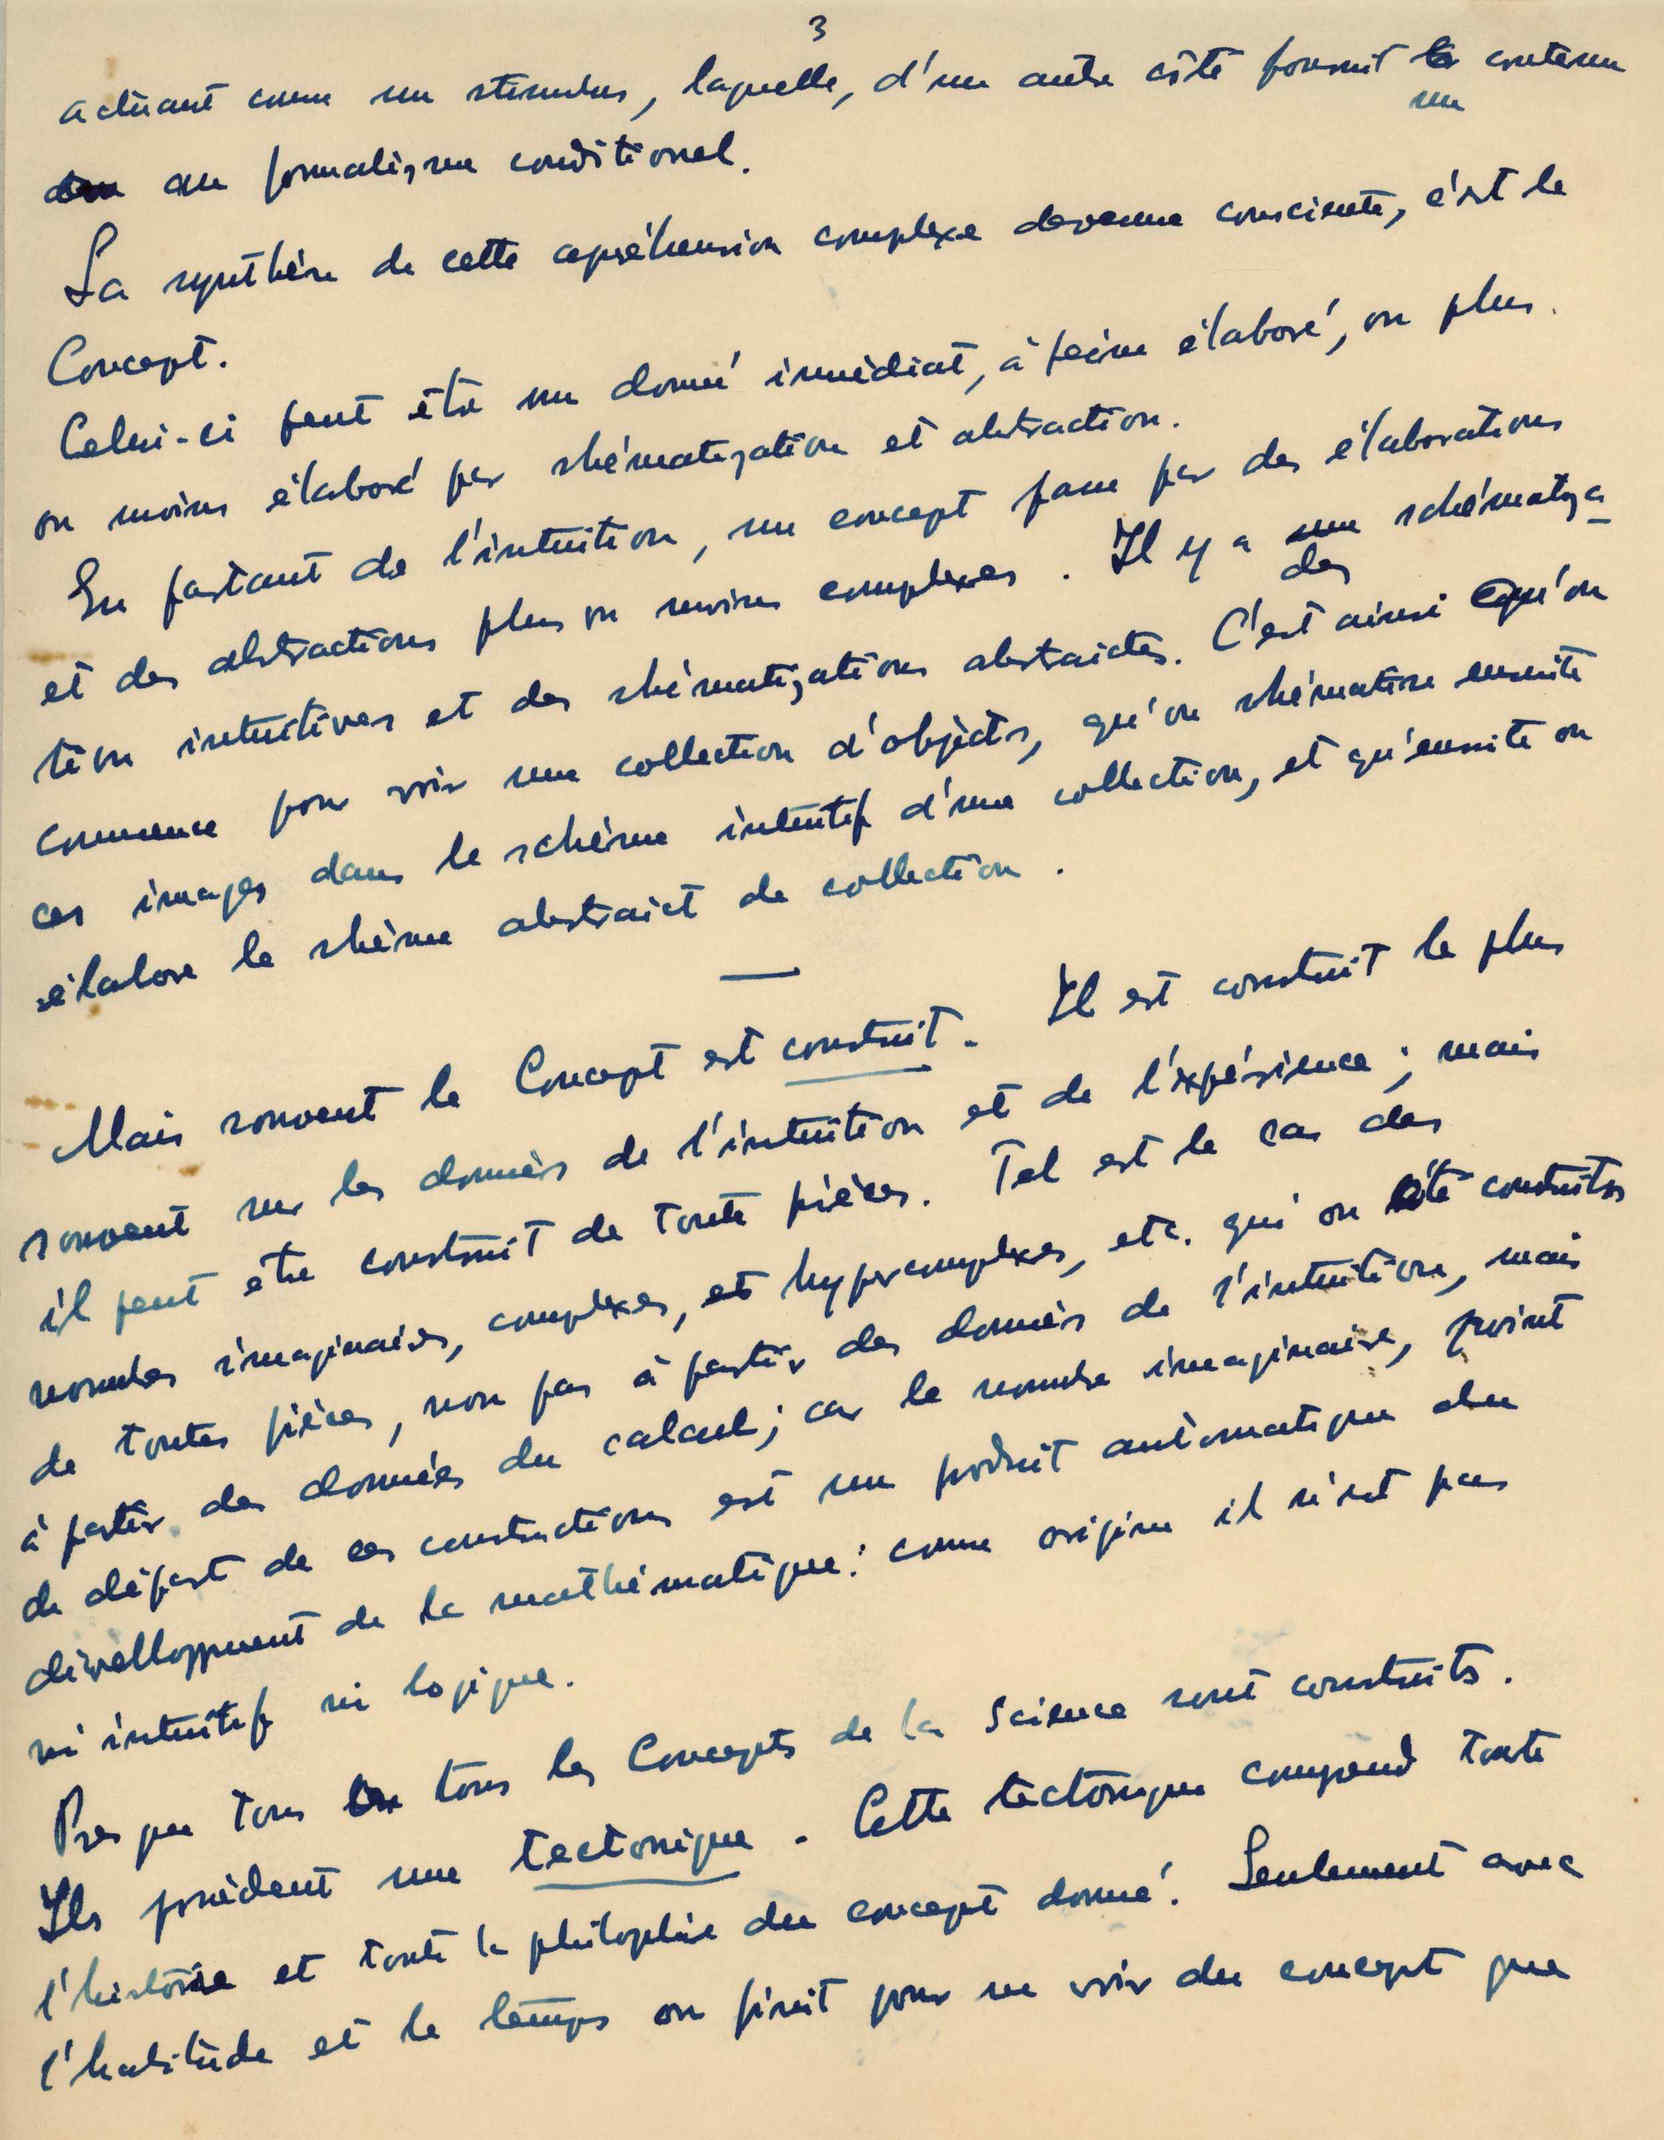 3
actuant comme un stimulus, laquelle, d'un autre côté fournit le contenu
un
au formalisme conditionel.
La synthèse de cette appréhension complexe devenue consciente, c'est le
Concept.
Celui-ci peut être un donné immédiat, à peine élaboré, ou plus
ou moins élaboré par shématization et abstraction.
En partant de l'intuition, un concept passe par des élaborations
et des abstractions plus ou moins complexes. Il y a une schématiza
des
tion intuitives et des shématizations abstraictes. C'est ainsi qu'on
commence pour voir une collection d'objects, qu'on shématise ensuite
ces images dans le schème intuitif d'une collection, et qu'ensuite on
élabore le shème abstraict de collection.
Mais souvent le Concept est construit. Il est construit le plus
souvent sur les donnés de l'intuition et de l'expérience; mais
il peut être construit de toute pièces. Tel est le cas des
nombres imaginaires, complexes, et hypercomplexes, etc. qui on été construits
de toutes pièces, non pas à partir des donnés de l'intuition, mais
à partir des données du calcul; car le nombre imaginaire, point
de départ de ces constructions est un produit automatique du
dévelloppment de la mathématique: comme origine il n'est pas
ni intuitif ni logique.
Presque tous tous les Concepts de la Science sont construits.
Ils possèdent une tectonique. Cette tectonique comprend toute
l'histoire et toute la philosophie du concept donné. Seulement avec
l'habitude et le temps on finit pour ne voir du concept que